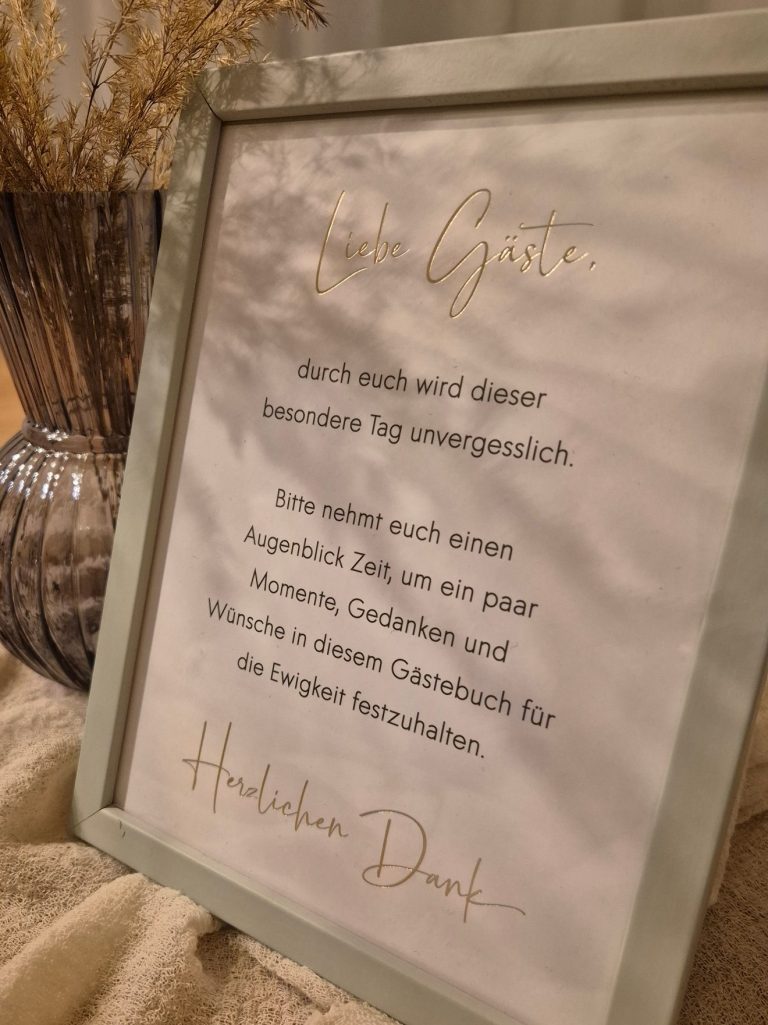 Liebe Gäste,
durch euch wird dieser
besondere Tag unvergesslich.
Bitte nehmt euch einen
Augenblick Zeit, um ein paar
Momente, Gedanken und
Wünsche in diesem Gästebuch für
die Ewigkeit festzuhalten.
Herzlichen Dank